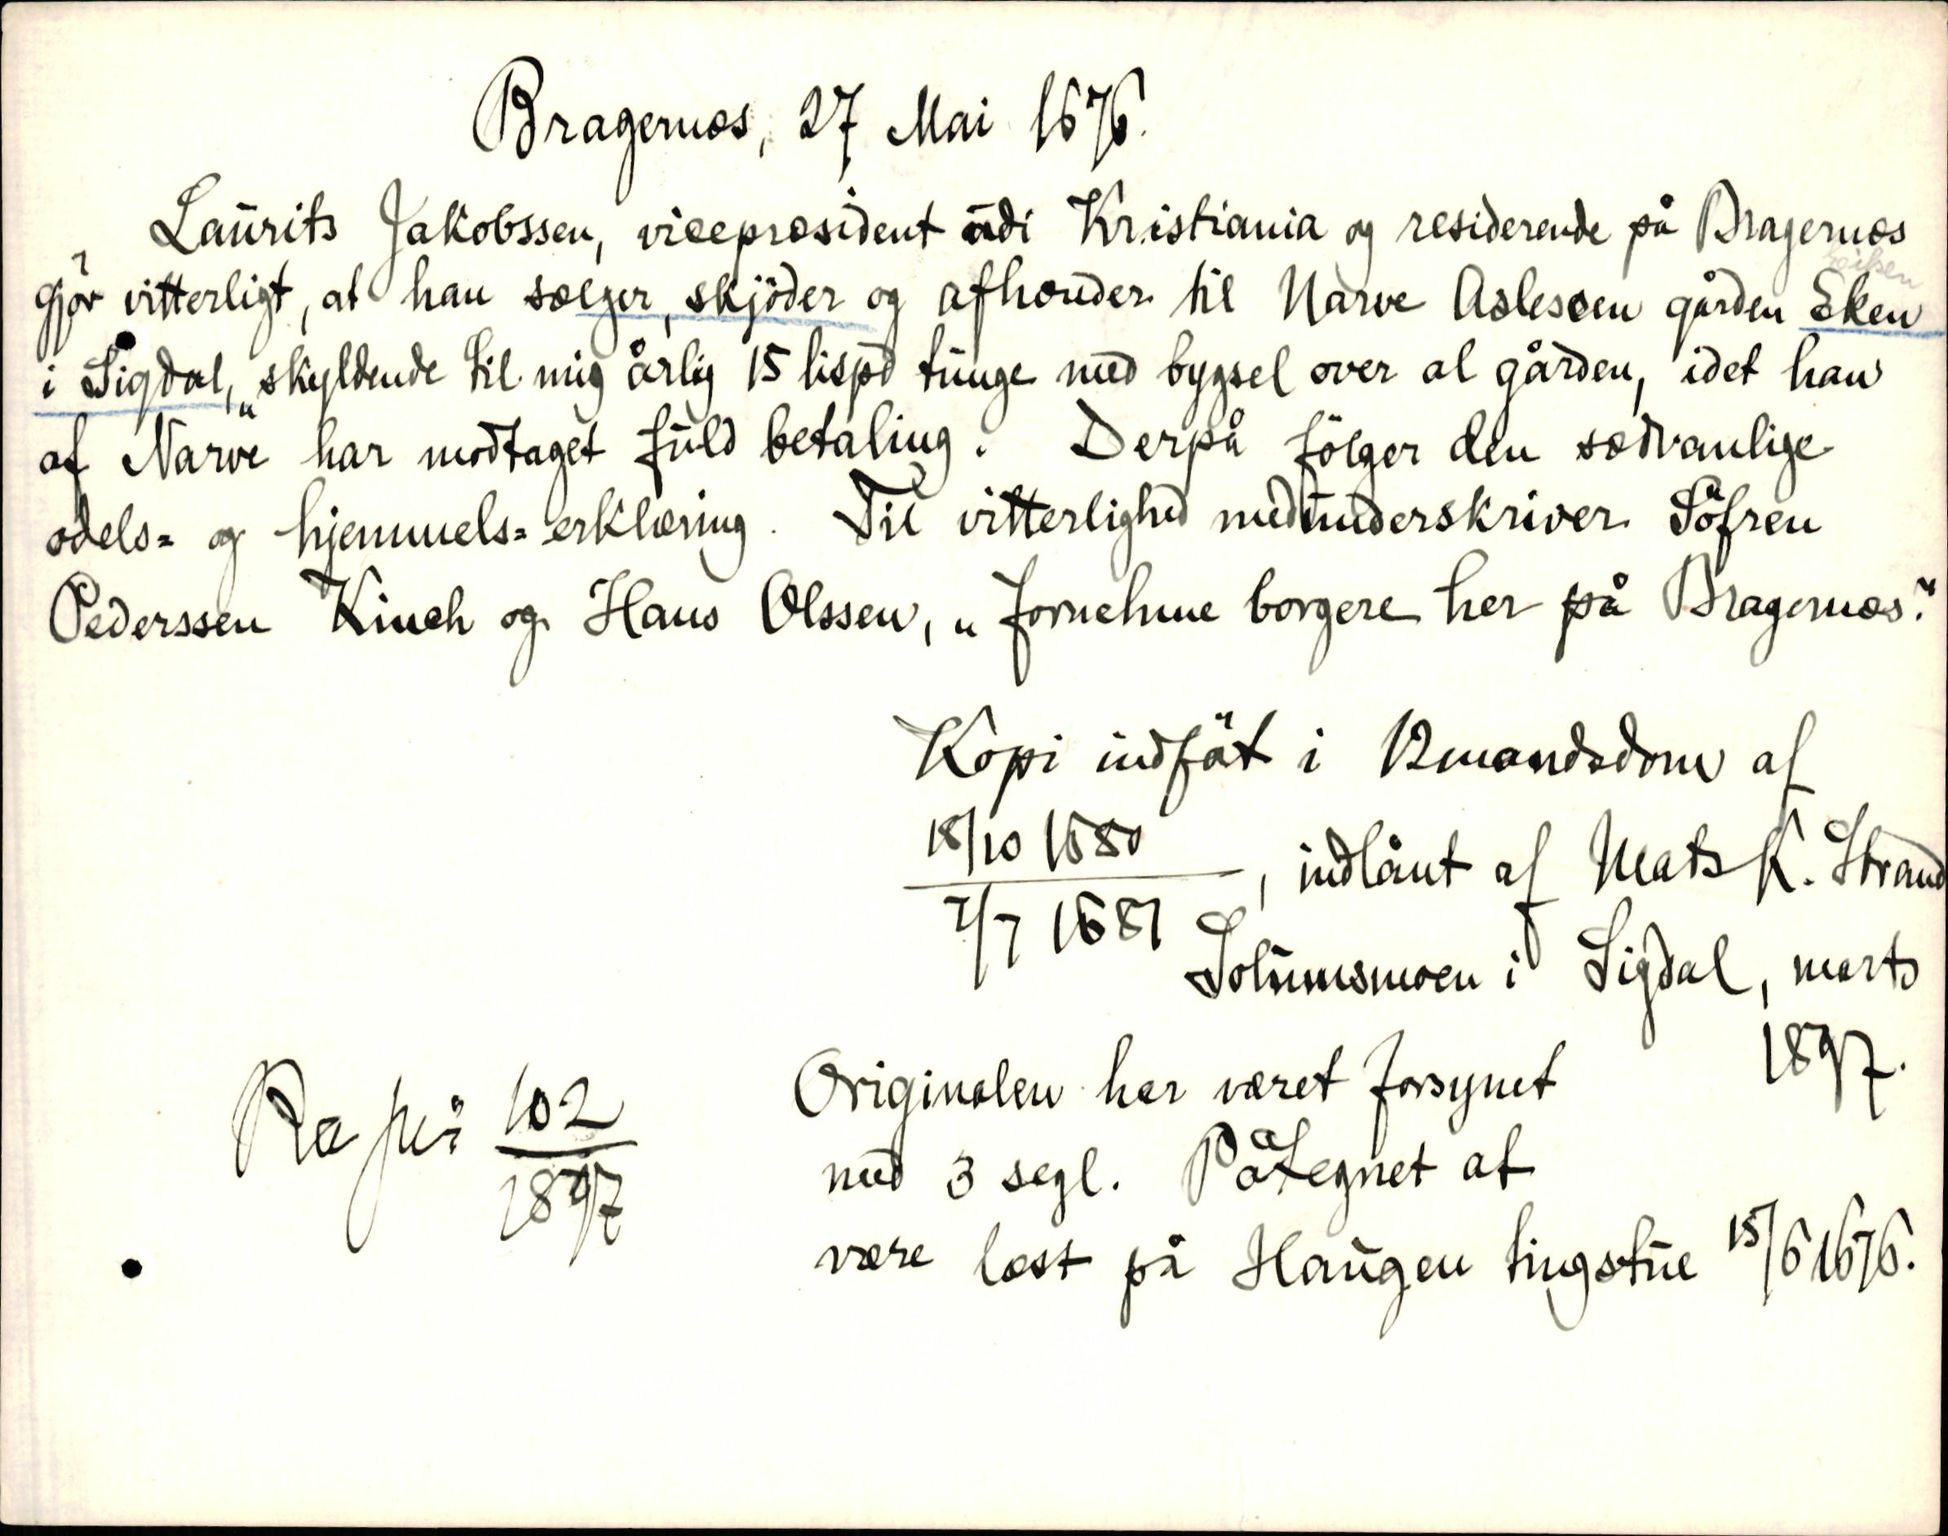 Bragernæs, 27 Mai 1676.
Laurits Jakobssen, vicepræsident udi Kristiania og residerende på Bragernæs
gjör vitterligt, at han sælger, skjöder og afhænder til Narve Aslessen gården Eken
i Sigdal, „skyldende til mig årlig 15 lispd tunge med bygsel over al gården, idet han
af Narve har modtaget fuld betaling. Derpå fölger den sædvanlige
odels= og hjemmels=erklæring. Til vitterlighed medunderskriver Söfren
Pederssen Kinch og Hans Olssen, „fornehme borgere her på Bragernæs.“
Kopi indfört i 12mandsdom af
18/10 1680
7/7 1681
, indlånt af Mats K. Strand
Solumsmoen i Sigdal, marts
1897.
Originalen har været forsynet
med 3 segl. Påtegnet at
være læst på Haugen tingstue 15/6 1676.
102
1897